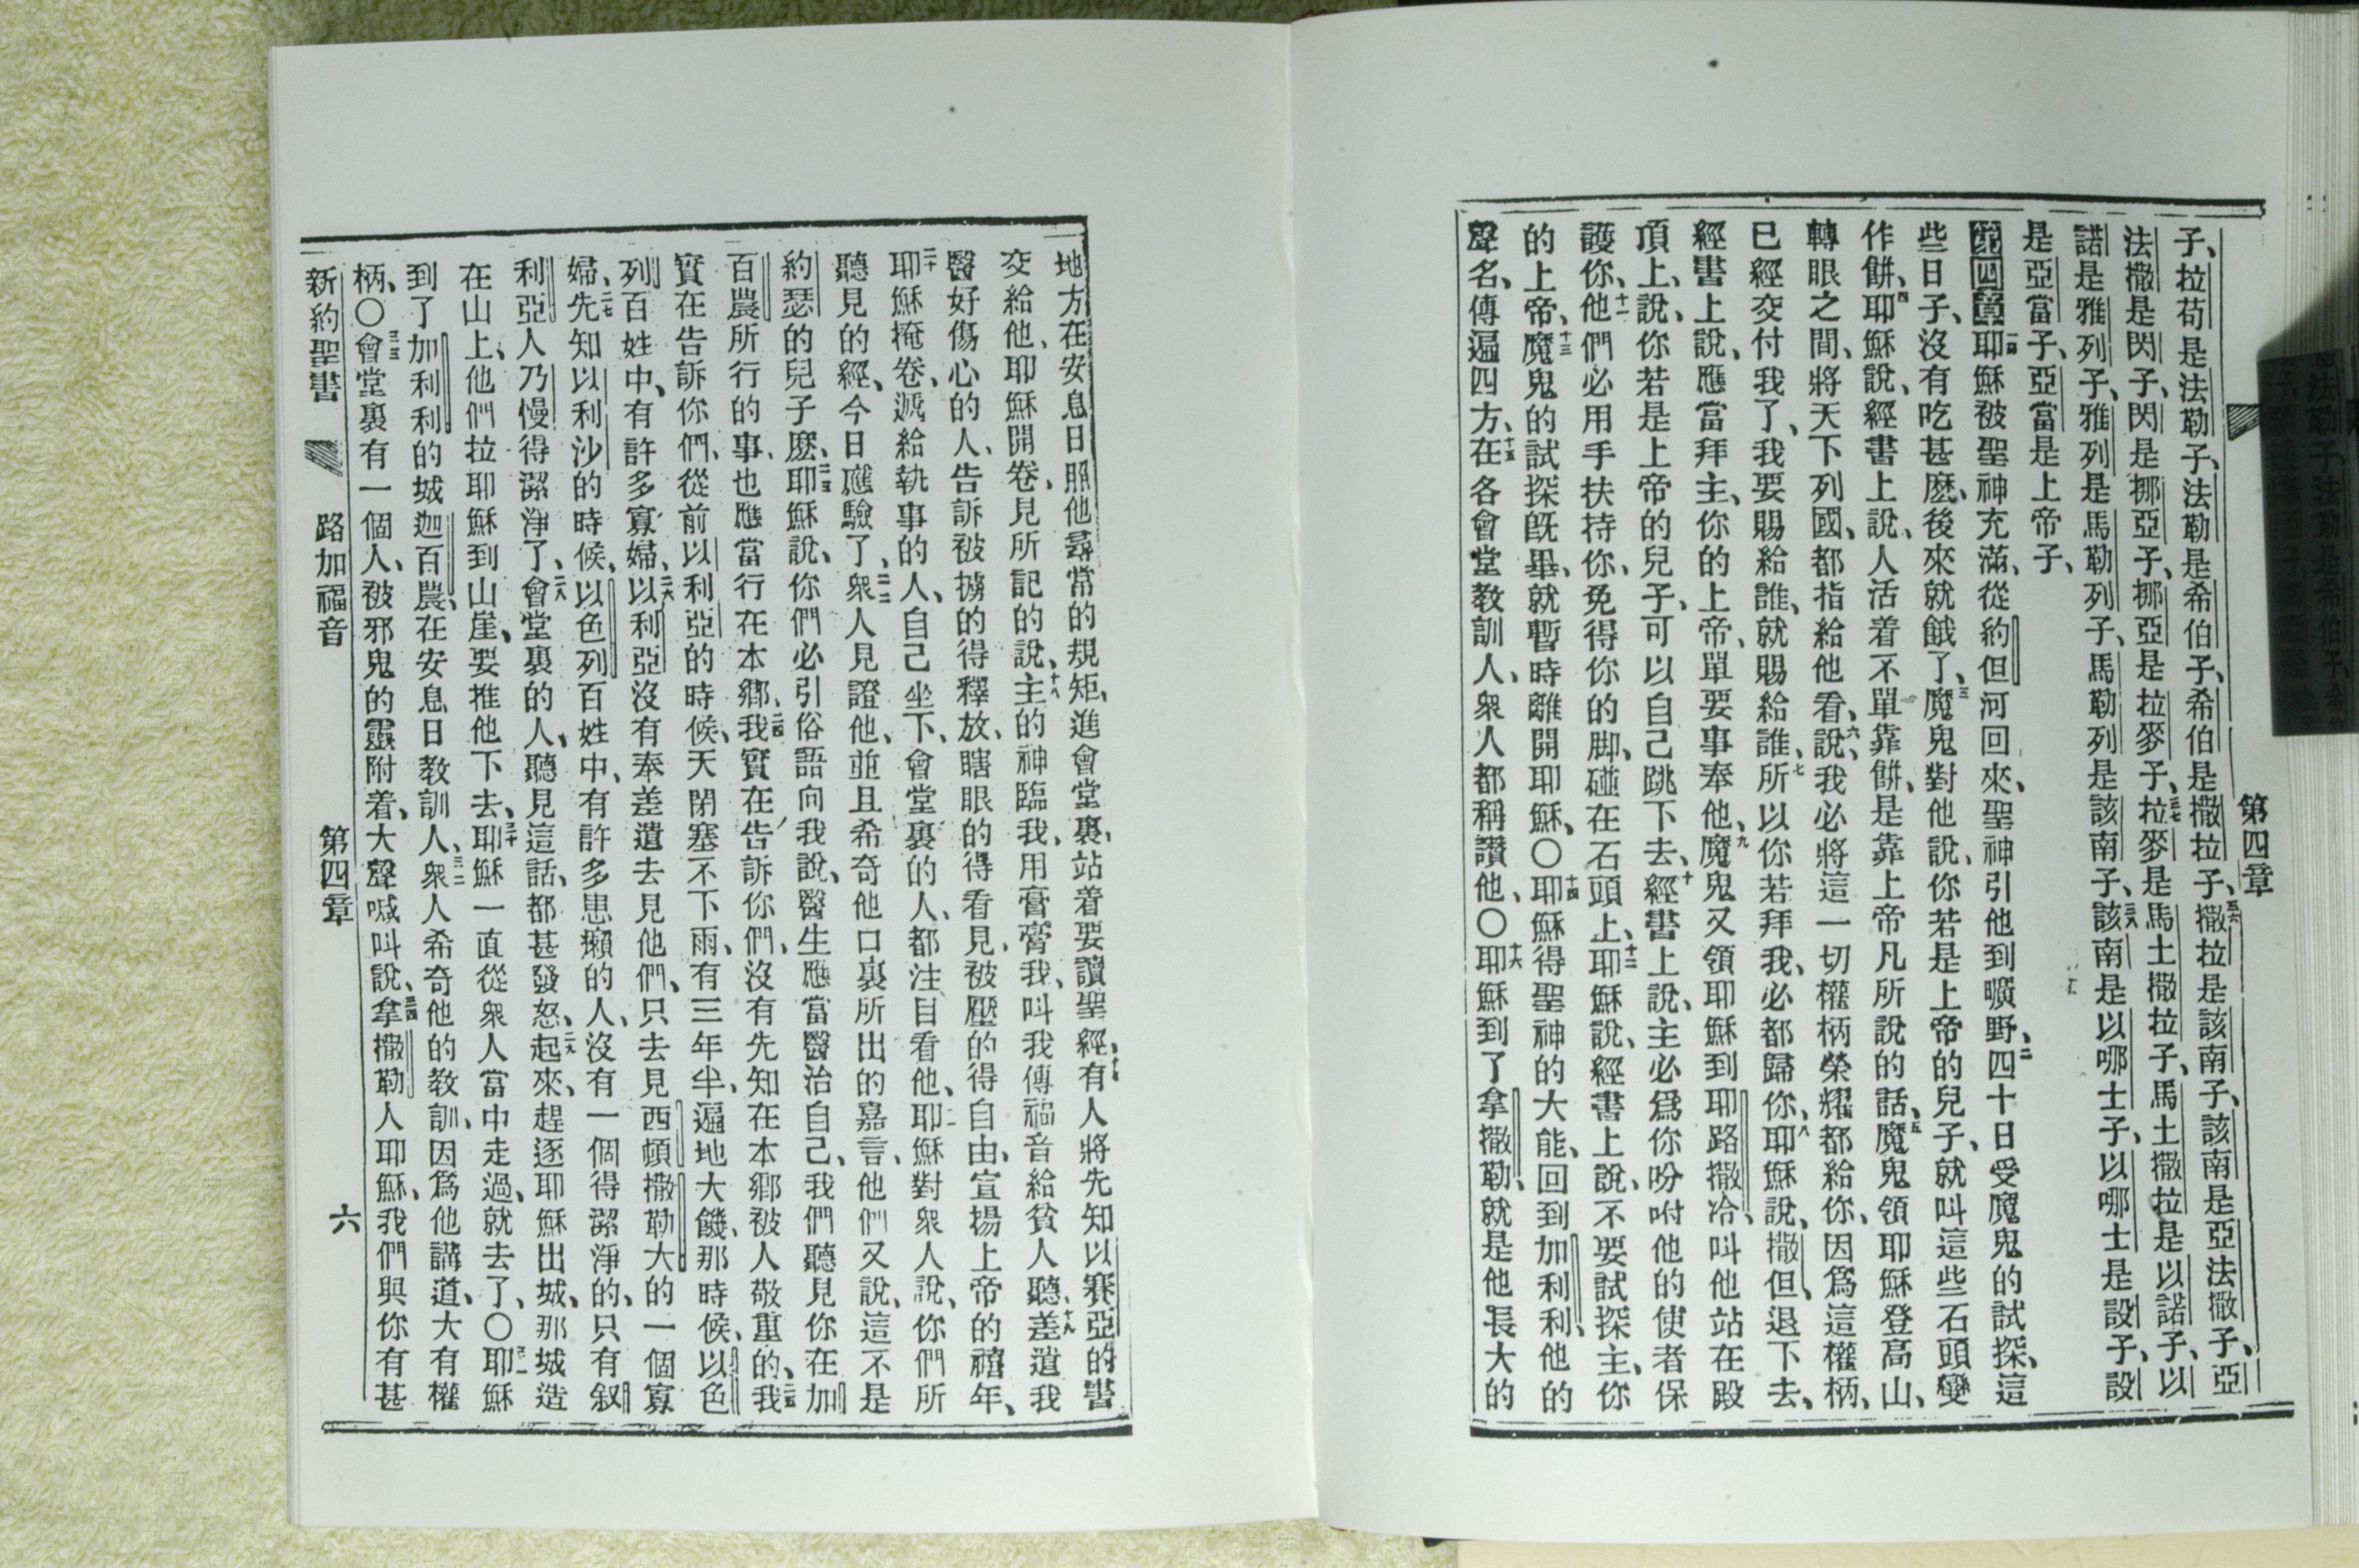 第四章
子、拉苟是法勒子、法勒是希伯子、希伯是撒拉子、三六撒拉是該南子、該南是亞法撒子、亞
法撒是閃子、閃是挪亞子、挪亞是拉麥子、三七拉麥是馬土撒拉子、馬土撒拉是以諾子、以
諾是雅列子、雅列是馬勒列子、馬勒列是該南子、三八該南是以哪士子、以哪士是設子、設
是亞當子、亞當是上帝子、
第四章 一耶穌被聖神充滿、從約但河回來、聖神引他到曠野、二四十日受魔鬼的試探、這
些日子、沒有吃甚麽、後來就餓了、三魔鬼對他說、你若是上帝的兒子、就叫這些石頭變
作餅、四耶穌說、經書上說、人活着不單靠餅、是靠上帝凡所說的話、五魔鬼領耶穌登高山、
轉眼之間、將天下列國、都指給他看、六說、我必將這一切權柄榮耀都給你、因爲這權柄、
已經交付我了、我要賜給誰、就賜給誰、七所以你若拜我、必都歸你、八耶穌說、撒但、退下去、
經書上說、應當拜主、你的上帝、單要事奉他、九魔鬼又領耶穌到耶路撒冷、叫他站在殿
頂上、說、你若是上帝的兒子、可以自己跳下去、十經書上說、主必爲你吩咐他的使者保
護你、十一他們必用手扶持你、免得你的脚、碰在石頭上、十二耶穌說、經書上說、不要試探主、你
的上帝、十三魔鬼的試探旣畢、就暫時離開耶穌、〇十四耶穌得聖神的大能、回到加利利、他的
聲名、傳遍四方、十五在各會堂教訓人、衆人都稱讚他、〇十六耶穌到了拿撒勒、就是他長大的
地方在安息日照他尋常的規矩、進會堂裏、站着要讀聖經、十七有人將先知以賽亞的書
交給他、耶穌開卷、見所記的說、十八主的神臨我、用膏膏我、叫我傳福音給貧人聽、十九差遣我
醫好傷心的人、告訴被擄的得釋放、瞎眼的得看見、被壓的得自由、宣揚上帝的禧年、
二十耶穌掩卷、遞給執事的人、自己坐下、會堂裏的人、都注目看他、二一耶穌對衆人說、你們所
聽見的經、今日應驗了、二二衆人見證他、並且希奇他口裏所出的嘉言、他們又說、這不是
約瑟的兒子麽、二三耶穌說、你們必引俗語向我說、醫生應當醫治自己、我們聽見你在加
百農所行的事、也應當行在本鄉、二四我實在告訴你們、沒有先知在本鄉被人敬重的、二五我
實在告訴你們、從前以利亞的時候、天閉塞不下雨、有三年半、遍地大饑、那時候、以色
列百姓中、有許多寡婦、二六以利亞沒有奉差遣去見他們、只去見西頓撒勒大的一個寡
婦、二七先知以利沙的時候、以色列百姓中、有許多患癩的人、沒有一個得潔淨的、只有叙
利亞人乃慢得潔淨了、二八會堂裏的人、聽見這話、都甚發怒、二九起來、趕逐耶穌出城、那城造
在山上、他們拉耶穌到山崖、要推他下去、三十耶穌一直從衆人當中走過、就去了、〇三一耶穌
到了加利利的城迦百農、在安息日教訓人、三二衆人希奇他的教訓、因爲他講道、大有權
柄、〇三三會堂裏有一個人、被邪鬼的靈附着、大聲喊叫說、三四拿撒勒人耶穌、我們與你有甚
新約聖書 路加福音 第四章 六